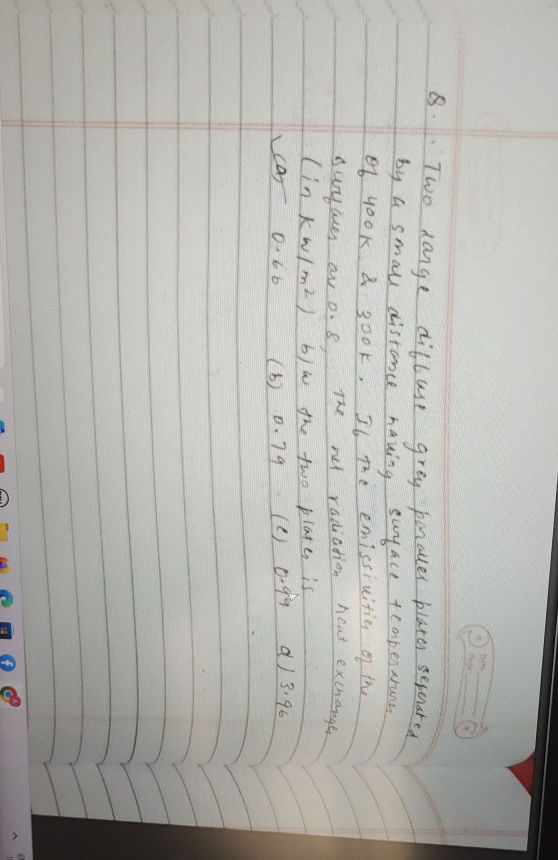 8. Two large diffuse grey parallel plates seperated
by a small distance having surface temperatures
of 400K & 300K. If the emissivities of the
surfaces are 0.8, the net radiation heat exchange
(in kW/m2) b/w the two plates is
(a) 0.66 (b) 0.79 (c) 0.99 d) 3.96